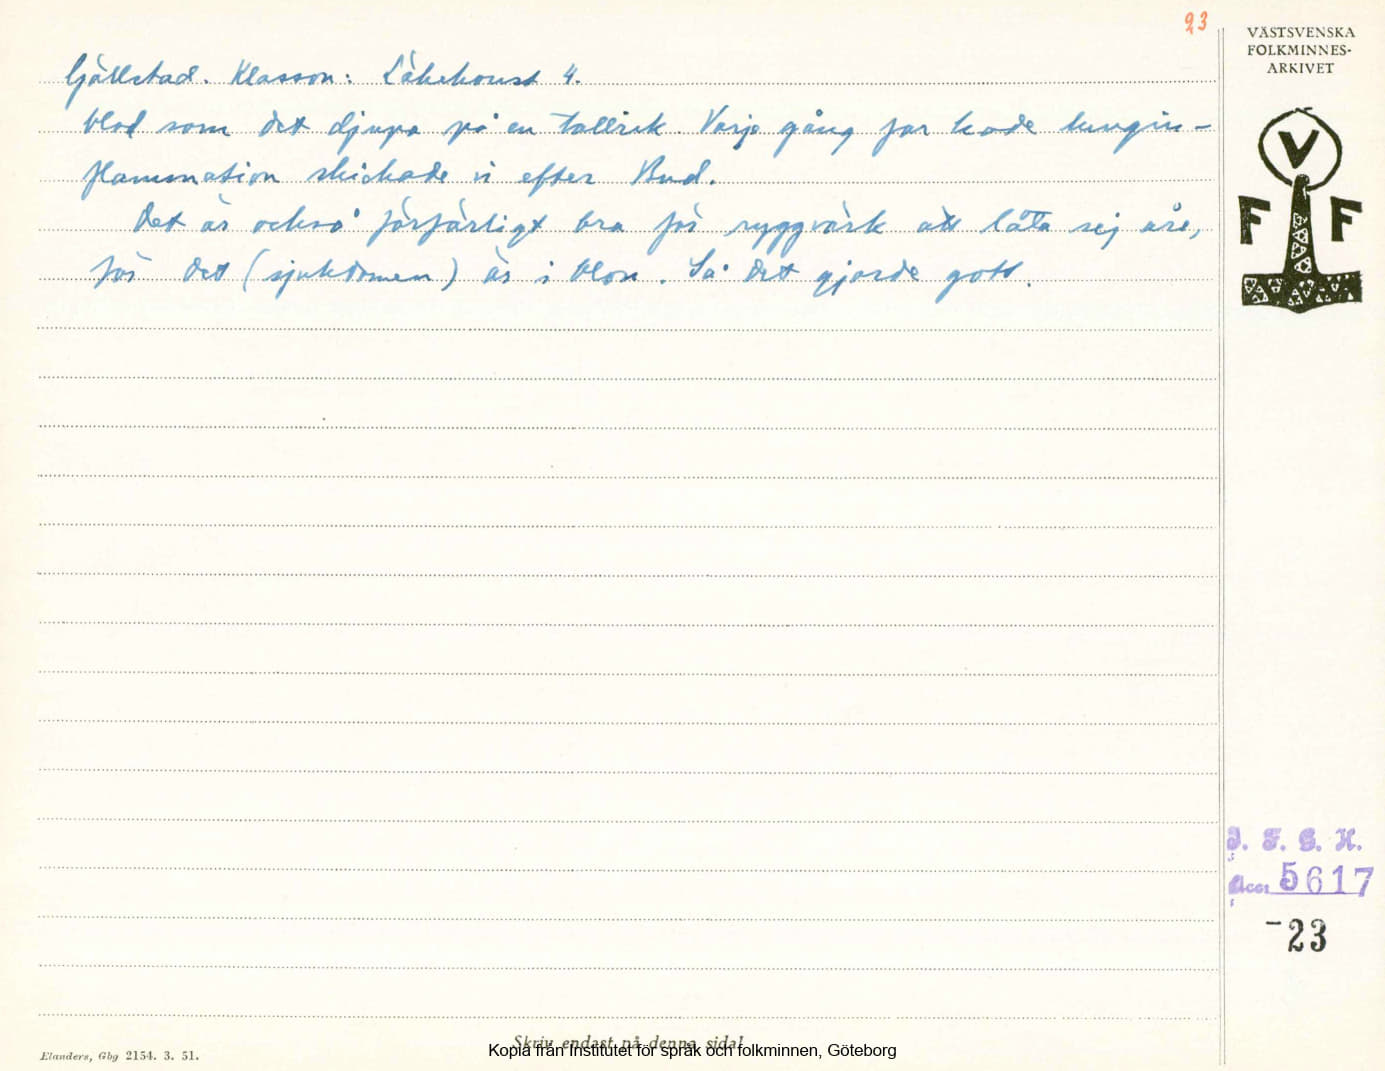 23
VÄSTSVENSKA
FOLKMINNES-
ARKIVET
V
F F
Gällstad. Klasson: Läkekonst 4.
blod som det djupa på en tallrik. Varje gång far hade lungin-
flammation skickade vi efter Bud.
Det är också förfärligt bra för ryggvärk att låta sej åre,
för det (sjukdomen) är i blon. Så det gjorde gott.
I. F. G. H.
Acc: 5617
-23
Skriv endast på denna sida!
Elanders, Gbg 2154. 3. 51.
Kopia från Institutet för språk och folkminnen, Göteborg